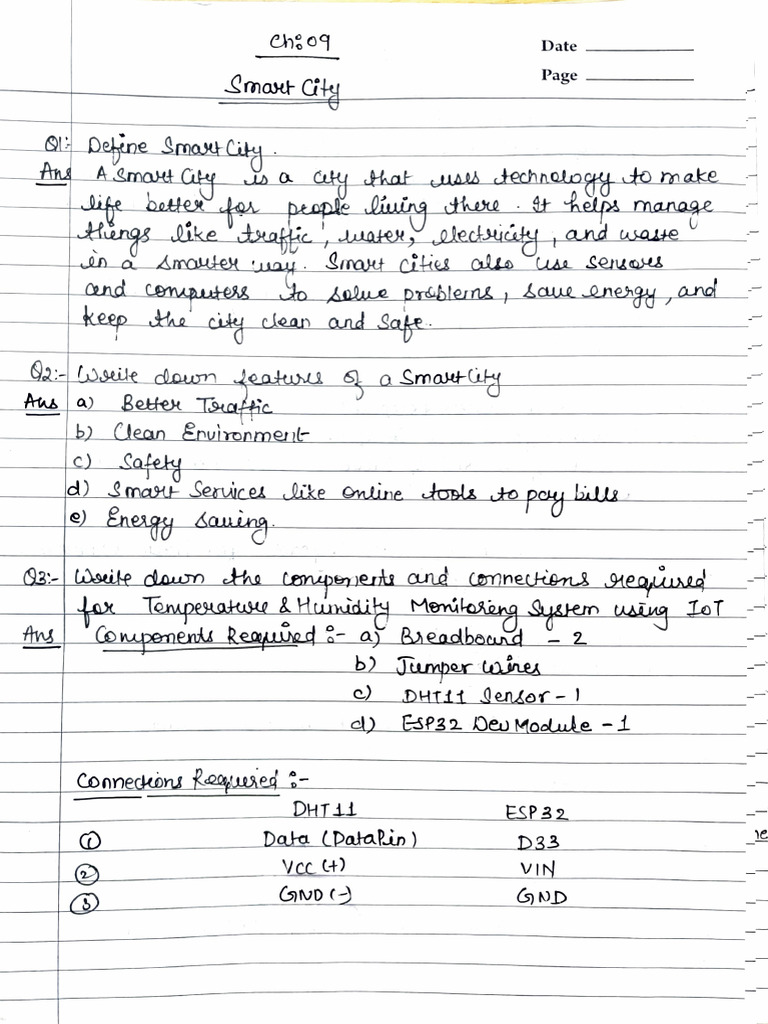 Ch:09
Date
Page
Smart City
Q1:- Define Smart City.
Ans A Smart City is a city that uses technology to make
life better for people living there. It helps manage
things like traffic, water, electricity, and waste
in a smarter way. Smart cities also use sensors
and computers to solve problems, save energy, and
keep the city clean and safe.
Q2:- Write down features of a Smart City
Ans a) Better Traffic
b) Clean Environment
c) Safety
d) Smart Services like online tools to pay bills.
e) Energy saving.
Q3:- Write down the components and connections required
for Temperature & Humidity Monitoring System using IoT
Ans Components Required :- a) Breadboard - 2
b) Jumper wires
c) DHT11 Sensor - 1
d) ESP32 Dev Module - 1
Connections Required :-
DHT11 ESP32
① Data (Data Pin) D33
② VCC (+) VIN
③ GND (-) GND